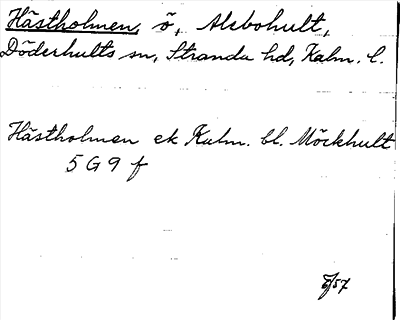 Hästholmen, ö, Alsbohult,
Döderhults sn, Stranda hd, Kalm. l.
Hästholmen ek Kalm. bl. Möckhult
5 G 9 f
/57